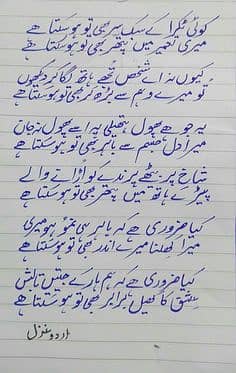 کوئی ٹکرا کے سبک سر بھی تو ہو سکتا ہے
میری تعمیر میں پتھر بھی تو ہو سکتا ہے
کیوں نہ اے شخص تجھے ہاتھ لگا کر دیکھوں
تو میرے وہم سے بڑھ کر بھی تو ہو سکتا ہے
یہ جو ہے پھول ہتھیلی پہ اسے پھول نہ جان
میرا دل جسم سے باہر بھی تو ہو سکتا ہے
شاخ پر بیٹھے پرندے کو اڑانے والے
پیڑ کے ہاتھ میں پتھر بھی تو ہو سکتا ہے
کیا ضروری ہے کہ باہر ہی نمو ہو میری
میرا کھلنا میرے اندر بھی تو ہو سکتا ہے
کیا ضروری ہے کہ ہم ہار کے جیتیں تابش
عشق کا کھیل برابر بھی تو ہو سکتا ہے
اردو غزل